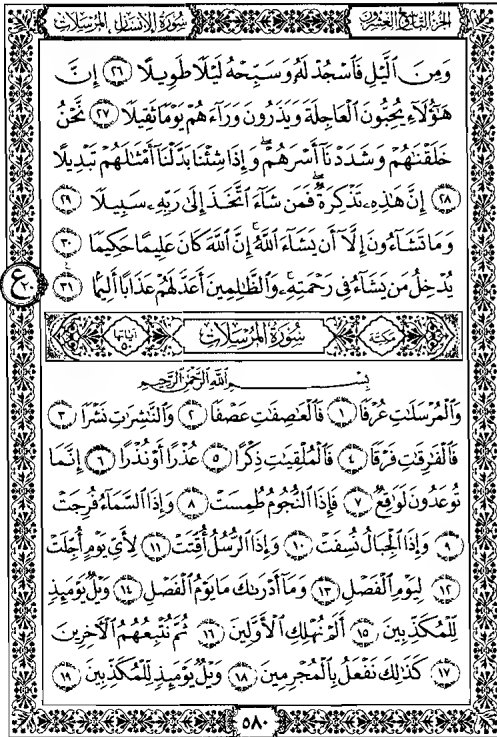 الجزء التاسع والعشرون
سورة الإنسان المرسلات
وَمِنَ ٱلَّيْلِ فَٱسْجُدْ لَهُۥ وَسَبِّحْهُ لَيْلًا طَوِيلًا ٢٦ إِنَّ
هَٰٓؤُلَآءِ يُحِبُّونَ ٱلْعَاجِلَةَ وَيَذَرُونَ وَرَآءَهُمْ يَوْمًا ثَقِيلًا ٢٧ نَّحْنُ
خَلَقْنَٰهُمْ وَشَدَدْنَآ أَسْرَهُمْ ۖ وَإِذَا شِئْنَا بَدَّلْنَآ أَمْثَٰلَهُمْ تَبْدِيلًا
٢٨ إِنَّ هَٰذِهِۦ تَذْكِرَةٌ ۖ فَمَن شَآءَ ٱتَّخَذَ إِلَىٰ رَبِّهِۦ سَبِيلًا ٢٩
وَمَا تَشَآءُونَ إِلَّآ أَن يَشَآءَ ٱللَّهُ ۚ إِنَّ ٱللَّهَ كَانَ عَلِيمًا حَكِيمًا ٣٠
يُدْخِلُ مَن يَشَآءُ فِى رَحْمَتِهِۦ ۚ وَٱلظَّٰلِمِينَ أَعَدَّ لَهُمْ عَذَابًا أَلِيمًا ٣١
ع ٢٠
مكية سُورَةُ الْمُرْسَلَات آياتها ٥٠
بِسْمِ ٱللَّهِ ٱلرَّحْمَٰنِ ٱلرَّحِيمِ
وَٱلْمُرْسَلَٰتِ عُرْفًا ١ فَٱلْعَٰصِفَٰتِ عَصْفًا ٢ وَٱلنَّٰشِرَٰتِ نَشْرًا ٣
فَٱلْفَٰرِقَٰتِ فَرْقًا ٤ فَٱلْمُلْقِيَٰتِ ذِكْرًا ٥ عُذْرًا أَوْ نُذْرًا ٦ إِنَّمَا
تُوعَدُونَ لَوَٰقِعٌ ٧ فَإِذَا ٱلنُّجُومُ طُمِسَتْ ٨ وَإِذَا ٱلسَّمَآءُ فُرِجَتْ
٩ وَإِذَا ٱلْجِبَالُ نُسِفَتْ ١٠ وَإِذَا ٱلرُّسُلُ أُقِّتَتْ ١١ لِأَىِّ يَوْمٍ أُجِّلَتْ
١٢ لِيَوْمِ ٱلْفَصْلِ ١٣ وَمَآ أَدْرَىٰكَ مَا يَوْمُ ٱلْفَصْلِ ١٤ وَيْلٌ يَوْمَئِذٍ
لِّلْمُكَذِّبِينَ ١٥ أَلَمْ نُهْلِكِ ٱلْأَوَّلِينَ ١٦ ثُمَّ نُتْبِعُهُمُ ٱلْءَاخِرِينَ
١٧ كَذَٰلِكَ نَفْعَلُ بِٱلْمُجْرِمِينَ ١٨ وَيْلٌ يَوْمَئِذٍ لِّلْمُكَذِّبِينَ ١٩
٥٨٠